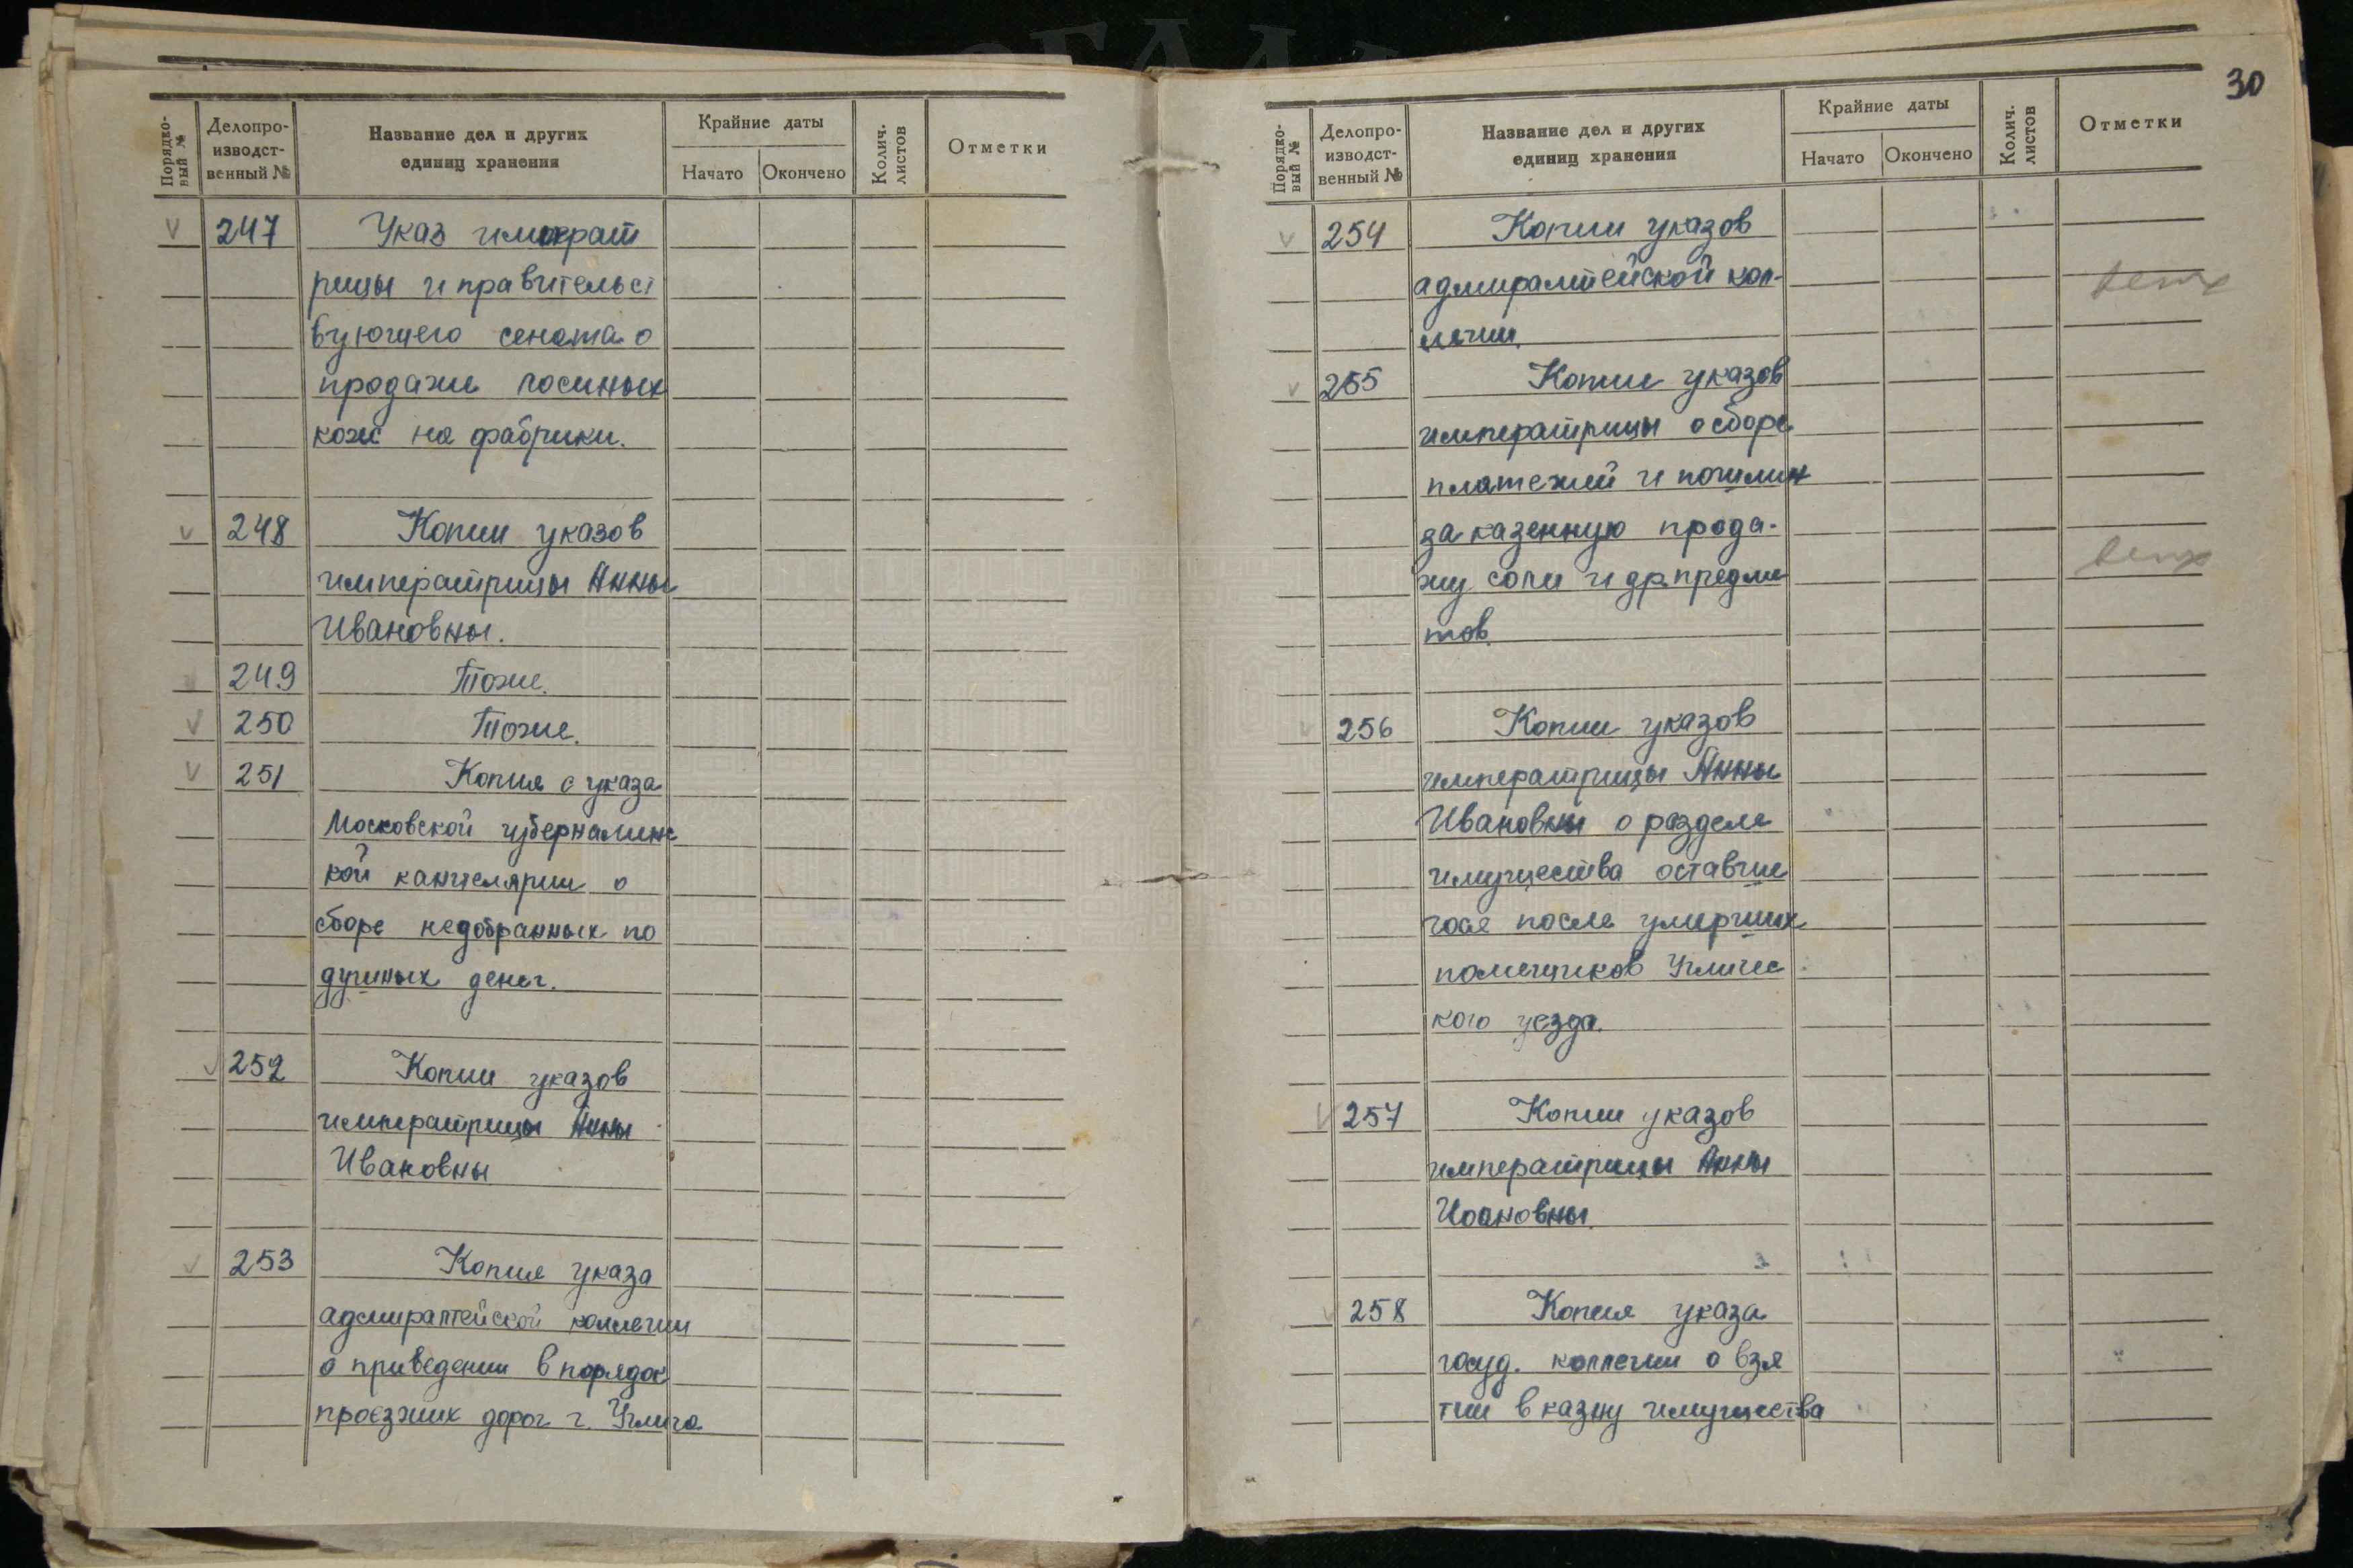 Порядко-
вый №
Делопро-
изводст-
венный №
Название дел и других
единиц хранения
Крайние даты
Начато
Окончено
Колич.
листов
Отметки
V 247 Указ императ
рицы и правительст
вующего сената о
продаже лосиных
кож на фабрики.
V 248 Копии указов
императрицы Анны
Ивановны.
V 249 Тоже.
V 250 Тоже.
V 251 Копия с указа
Московской губернаминс
кой канцелярии о
сборе недобранных по
душных денег.
V 252 Копии указов
императрицы Анны
Ивановны
V 253 Копия указа
адмиралтейской коллегии
о приведении в порядок
проезжих дорог г. Углича
30
Порядко-
вый №
Делопро-
изводст-
венный №
Название дел и других
единиц хранения
Крайние даты
Начато
Окончено
Колич.
листов
Отметки
V 254 Копии указов
адмиралтейской кол-
легии.
ветх
V 255 Копии указов
императрицы о сборе
платежей и пошлин
за казенную прода-
жу соли и др. предме
тов.
ветх
V 256 Копии указов
императрицы Анны
Ивановны о разделе
имущества оставше
гося после умерших
помещиков Угличес
кого уезда.
V 257 Копии указов
императрицы Анны
Иоановны.
V 258 Копия указа
госуд. коллегии о взя
тии в казну имущества